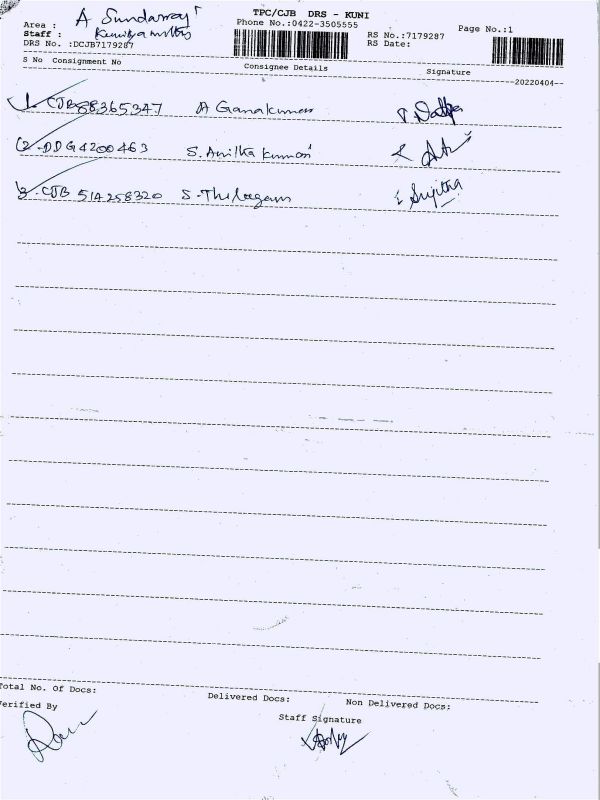 TPC/CJB DRS - KUNI
Area : A Sundarraj
Phone No.:0422-3505555
Page No.:1
Staff : Kuniyamuthur
RS No.:7179287
DRS No. :DCJB7179287
RS Date:
S No Consignment No Consignee Details Signature
20220404
1. CJB88365347 A Ganakumar
2. DDG4200463 S. Anitha kumari
3. CJB 514258320 S. Thilagam Sujitha
Total No. Of Docs: Delivered Docs: Non Delivered Docs:
erified By Staff Signature